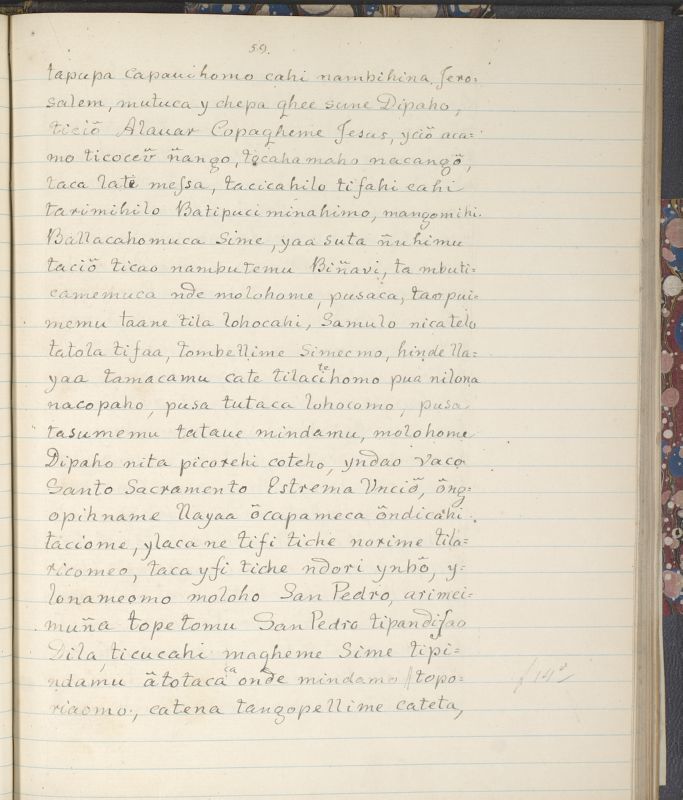 59.
tapupa capauihomo cahi nambihina Jero:
salem, mutuca y chepa ghee sune Dipaho,
ticiõ Alauar Copagheme Jesus, yciõ aca:
mo ticoceũ ñango, tocahamaho nacangõ,
taca late messa, tacicahilo tifahi cahi
tarimihilo Batipuci minahimo, mangomihi.
Ballacahomuca Sime, yaa suta ñuhimu
taciõ ticao nambutemu Biñavi, ta mbuti:
camemuca nde molohome, pusaca, taopui:
memu taane tila lohocahi, Samulo nicatelo
tatola tifaa, tombellime Simecmo, hinde lla:
yaa tamacamu cate tilacitehomo pua nilona
nacopaho, pusa tutaca lohocomo, pusa
tasumemu tataue mindamu, molohome
Dipaho nita picorehi coteho, yndao vaco
Santo Sacramento Estrema Vnciõ, õng:
opihname llayaa õcapameca õndicahi.
taciome, ylaca ne tifi tiche norime tila:
ricomeo, taca yfi tiche ndori ynbõ, y:
lonameomo moloho San Pedro, arimei:
muña topetomu San Pedro tipandifao
Dila, ticucahi magheme Sime tipi:
ndamu ãtotacaca onde mindamo // topo:
riaomo:, catena tangopellime cateta,